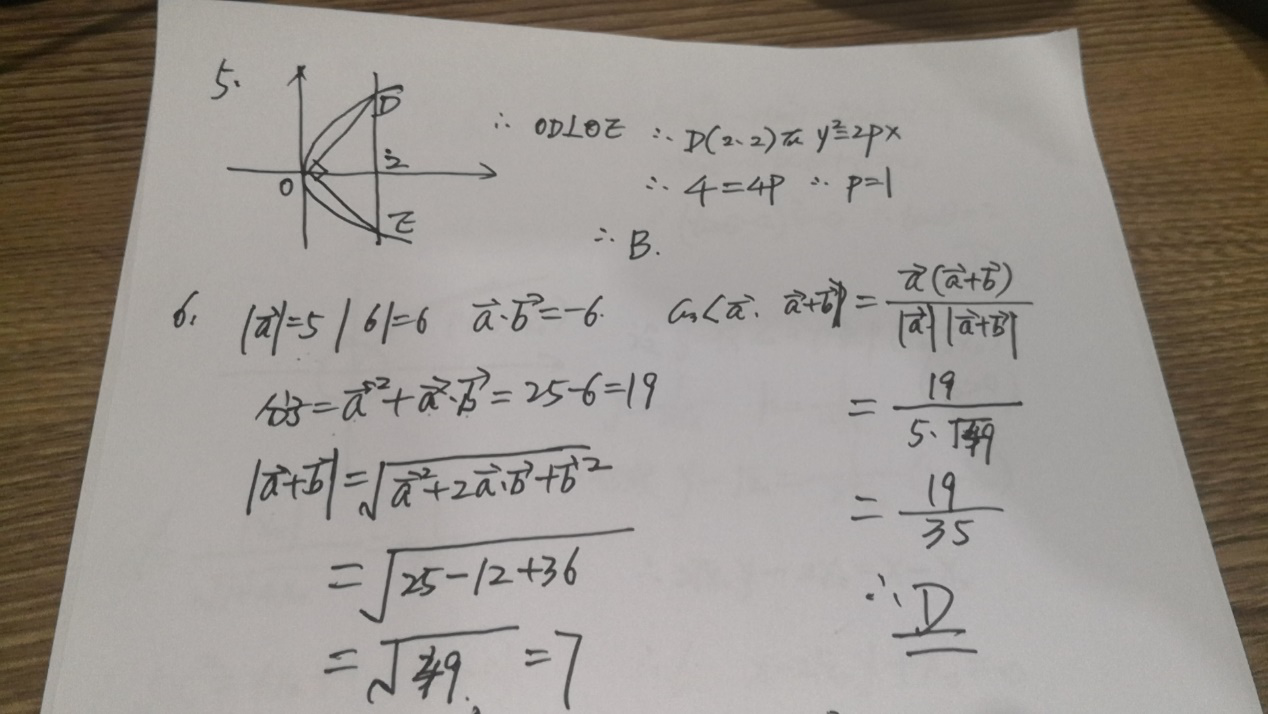 5.
D
2
O
E
∴ OD⊥OE ∴ D(2、2) y²=2px
∴ 4=4p ∴ p=1
∴ B.
6. |a⃗|=5 |b|=6 a⃗·b⃗=-6. cos<a⃗、a⃗+b⃗>=a⃗(a⃗+b⃗)/|a⃗||a⃗+b⃗|
分子=a⃗²+a⃗·b⃗=25-6=19
=19/5·√49
|a⃗+b⃗|=√a⃗²+2a⃗·b⃗+b⃗²
=19/35
=√25-12+36
∴ D
=√49=7